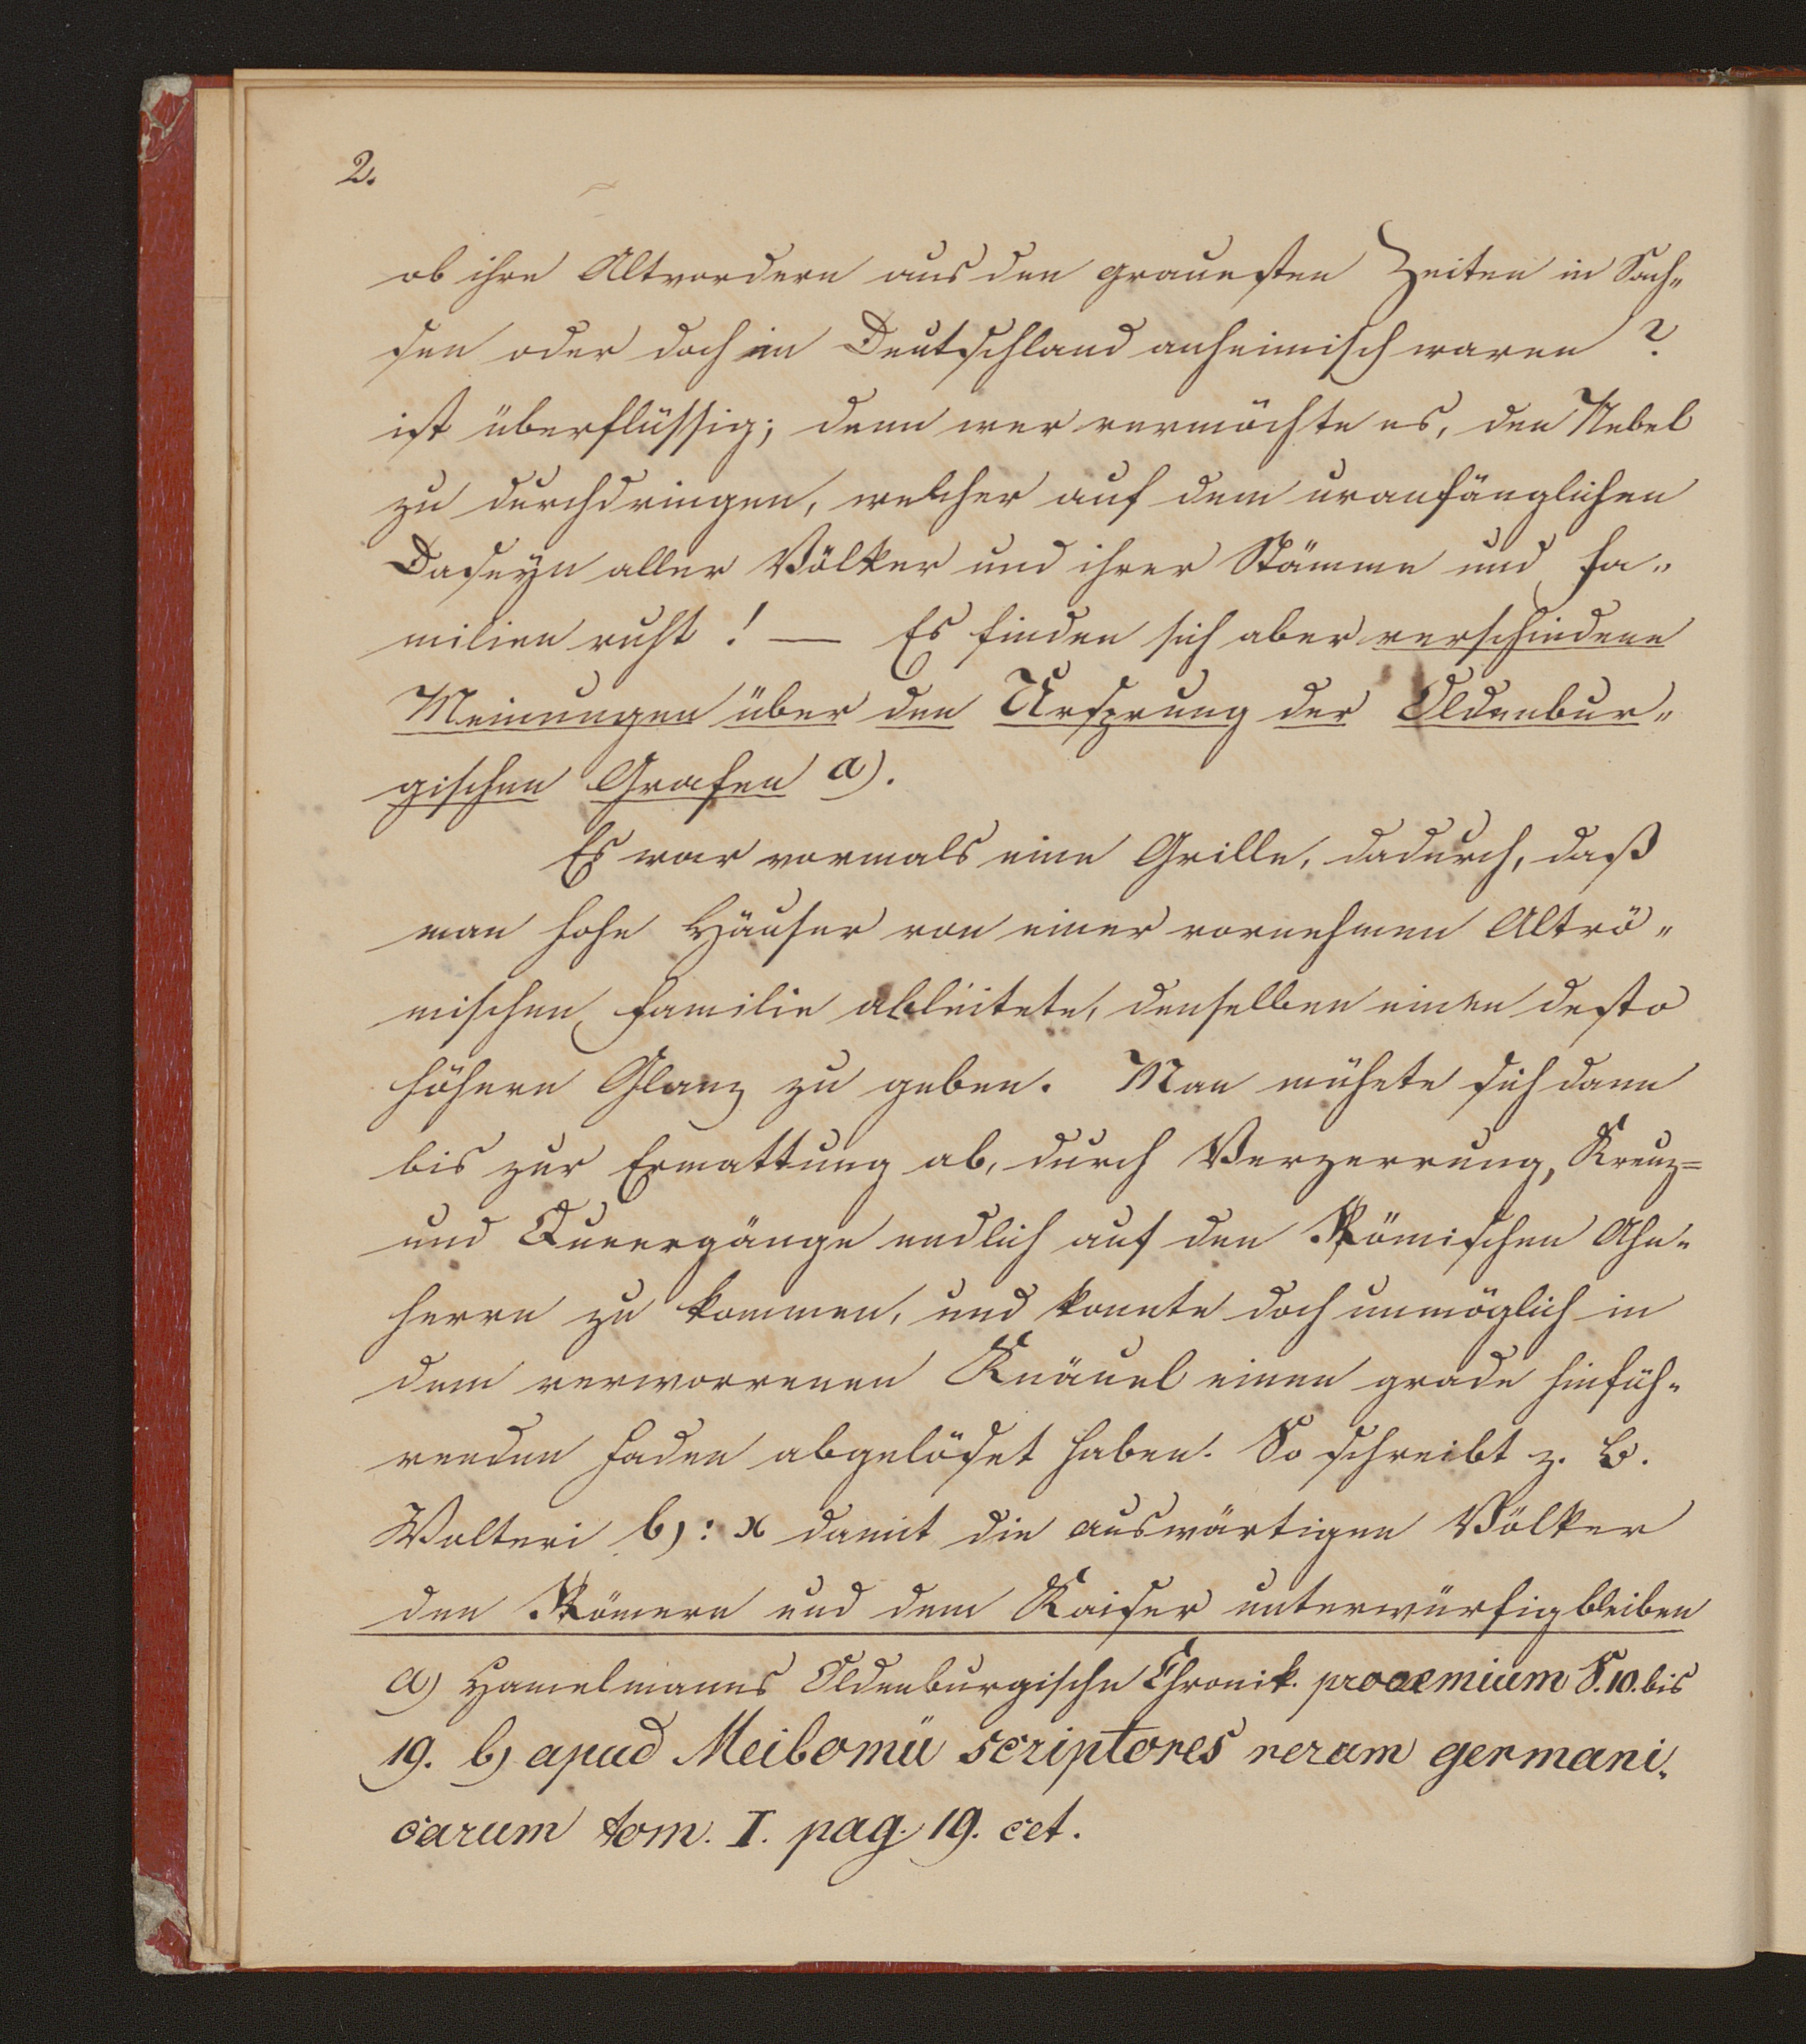 2.
ob ihre Altvordern aus den grauesten Zeiten in Sach-
sen oder doch in Deutschland anheimisch waren?
ist überflüssig; denn wer vermöchte es, den Nebel
zu durchdringen, welcher auf dem uranfänglichen
Daseyn aller Völker und ihrer Stämme und Fa-
milien ruht! — Es finden sich aber verschiedene
Meinungen über den Ursprung der Oldenbur-
gischen Grafen a).
Es war vormals eine Grille, dadurch, daß
man hohe Häuser von einer vornehmen Altrö-
mischen Familie ableitete, denselben einen desto
höhern Glanz zu geben. Man mühete sich dann
bis zur Ermattung ab, durch Verzerrung, Kreuz-
und Queergänge endlich auf den Römischen Ahn-
herrn zu kommen, und konnte doch unmöglich in
dem verworrenen Knäuel einen grade hinfüh-
renden Faden abgelöset haben. So schreibt z. B.
Wolteri b): x damit die auswärtigen Völker
den Römern und dem Kaiser unterwürfig bleiben
a) Hamelmanns Oldenburgische Chronik. prooemium S. 10. bis
19. b) apud Meibomii scriptores rerum germani-
carum tom. I. pag. 19. cet.